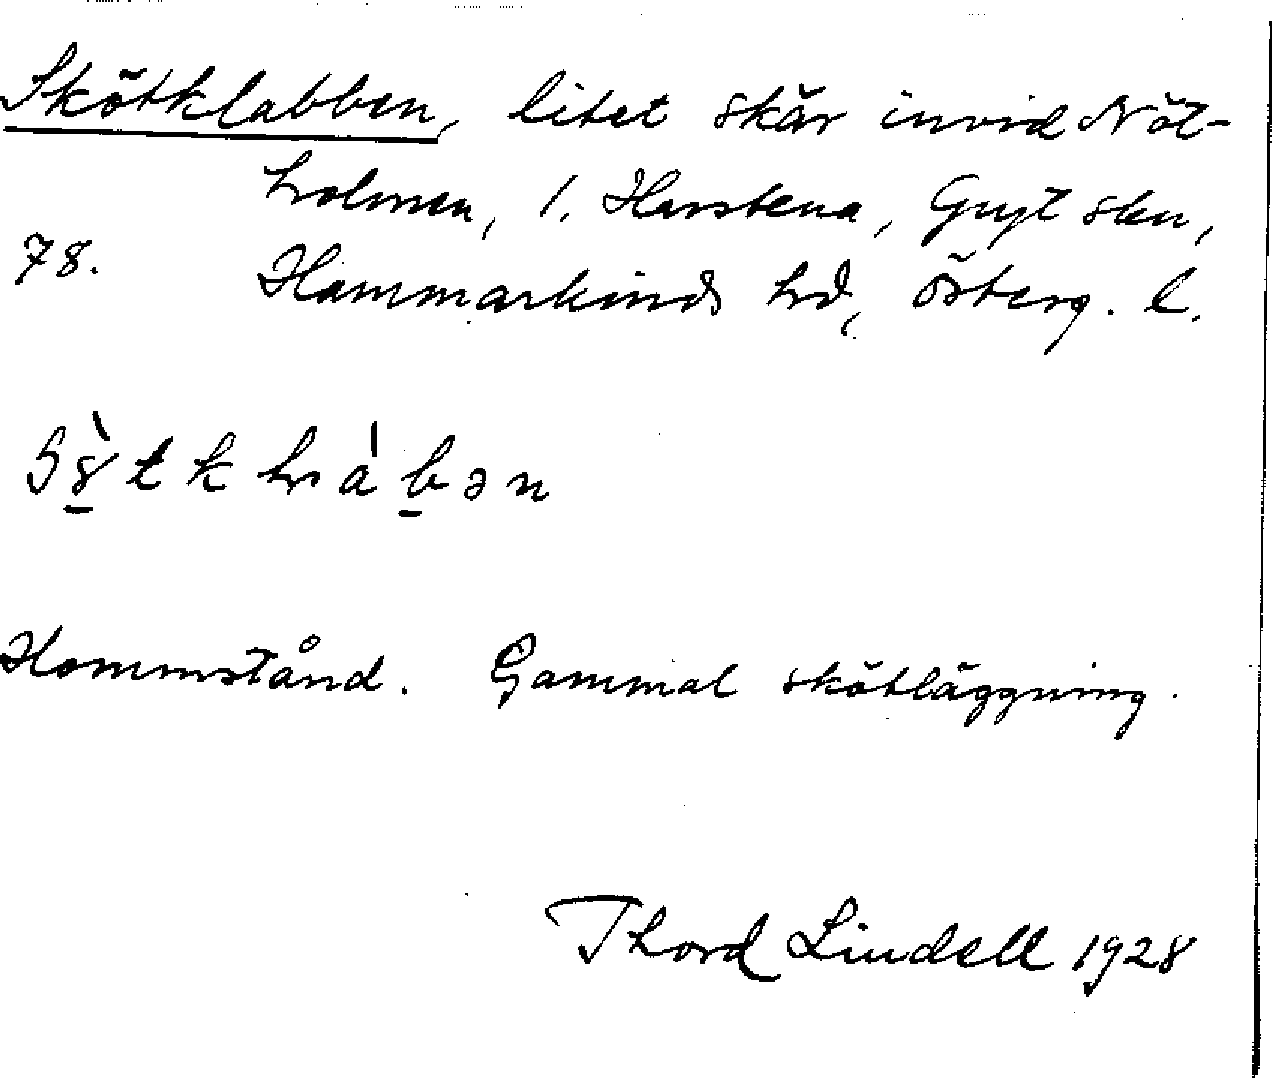 Skötklabben, litet skär invid Nöt-
holmen, 1. Harstena, Gryt skn,
78. Hammarkinds hd, Österg. l.
Hommstånd. Gammal skötläggning.
Thord Lindell 1928